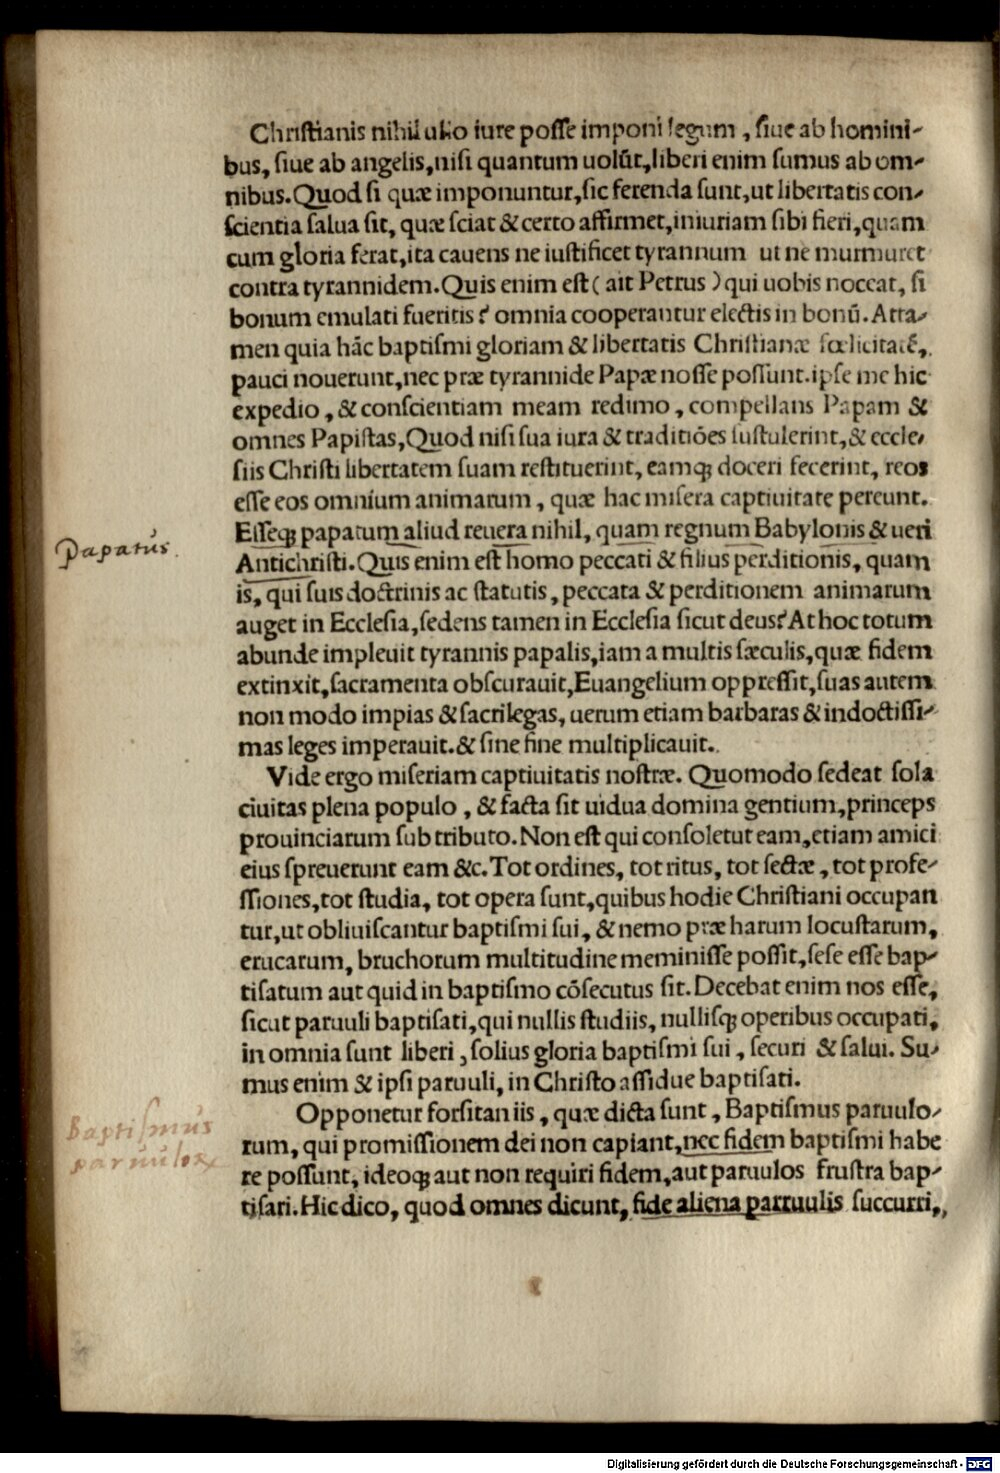 Christianis nihil ullo iure posse imponi legum, siue ab homini-
bus, siue ab angelis, nisi quantum uolūt, liberi enim sumus ab om-
nibus. Quod si quæ imponuntur, sic ferenda sunt, ut libertatis con-
scientia salua sit, quæ sciat & certo affirmet, iniuriam sibi fieri, quam
cum gloria ferat, ita cauens ne iustificet tyrannum ut ne murmuret
contra tyrannidem. Quis enim est ( ait Petrus ) qui uobis noceat, si
bonum emulati fueritis? omnia cooperantur electis in bonū. Atta-
men quia hāc baptismi gloriam & libertatis Christianæ fœlicitatē,
pauci nouerunt, nec præ tyrannide Papæ nosse possunt. ipse me hic
expedio, & conscientiam meam redimo, compellans Papam &
omnes Papistas, Quod nisi sua iura & traditiōes sustulerint, & eccle-
siis Christi libertatem suam restituerint, eamqꝫ doceri fecerint, reos
esse eos omnium animarum, quæ hac misera captiuitate pereunt.
Esseqꝫ papatum aliud reuera nihil, quam regnum Babylonis & ueri
Papatus.
Antichristi. Quis enim est homo peccati & filius perditionis, quam
is, qui suis doctrinis ac statutis, peccata & perditionem animarum
auget in Ecclesia, sedens tamen in Ecclesia sicut deus? At hoc totum
abunde impleuit tyrannis papalis, iam a multis sæculis, quæ fidem
extinxit, sacramenta obscurauit, Euangelium oppressit, suas autem
non modo impias & sacrilegas, uerum etiam barbaras & indoctissi-
mas leges imperauit. & sine fine multiplicauit.
Vide ergo miseriam captiuitatis nostræ. Quomodo sedeat sola
ciuitas plena populo, & facta sit uidua domina gentium, princeps
prouinciarum sub tributo. Non est qui consoletut eam, etiam amici
eius spreuerunt eam &c. Tot ordines, tot ritus, tot sectæ, tot profe-
ssiones, tot studia, tot opera sunt, quibus hodie Christiani occupan
tur, ut obliuiscantur baptismi sui, & nemo præ harum locustarum,
erucarum, bruchorum multitudine meminisse possit, sese esse bap-
tisatum aut quid in baptismo cōsecutus sit. Decebat enim nos esse,
sicut paruuli baptisati, qui nullis studiis, nullisqꝫ operibus occupati,
in omnia sunt liberi, solius gloria baptismi sui, securi & salui. Su-
mus enim & ipsi paruuli, in Christo assidue baptisati.
Opponetur forsitan iis, quæ dicta sunt, Baptismus paruulo-
Baptismus
rum, qui promissionem dei non capiant, nec fidem baptismi habe
paruuloꝝ
re possunt, ideoqꝫ aut non requiri fidem, aut paruulos frustra bap-
tisari. Hic dico, quod omnes dicunt, fide aliena parruulis succurri,
Digitalisierung gefördert durch die Deutsche Forschungsgemeinschaft - DFG